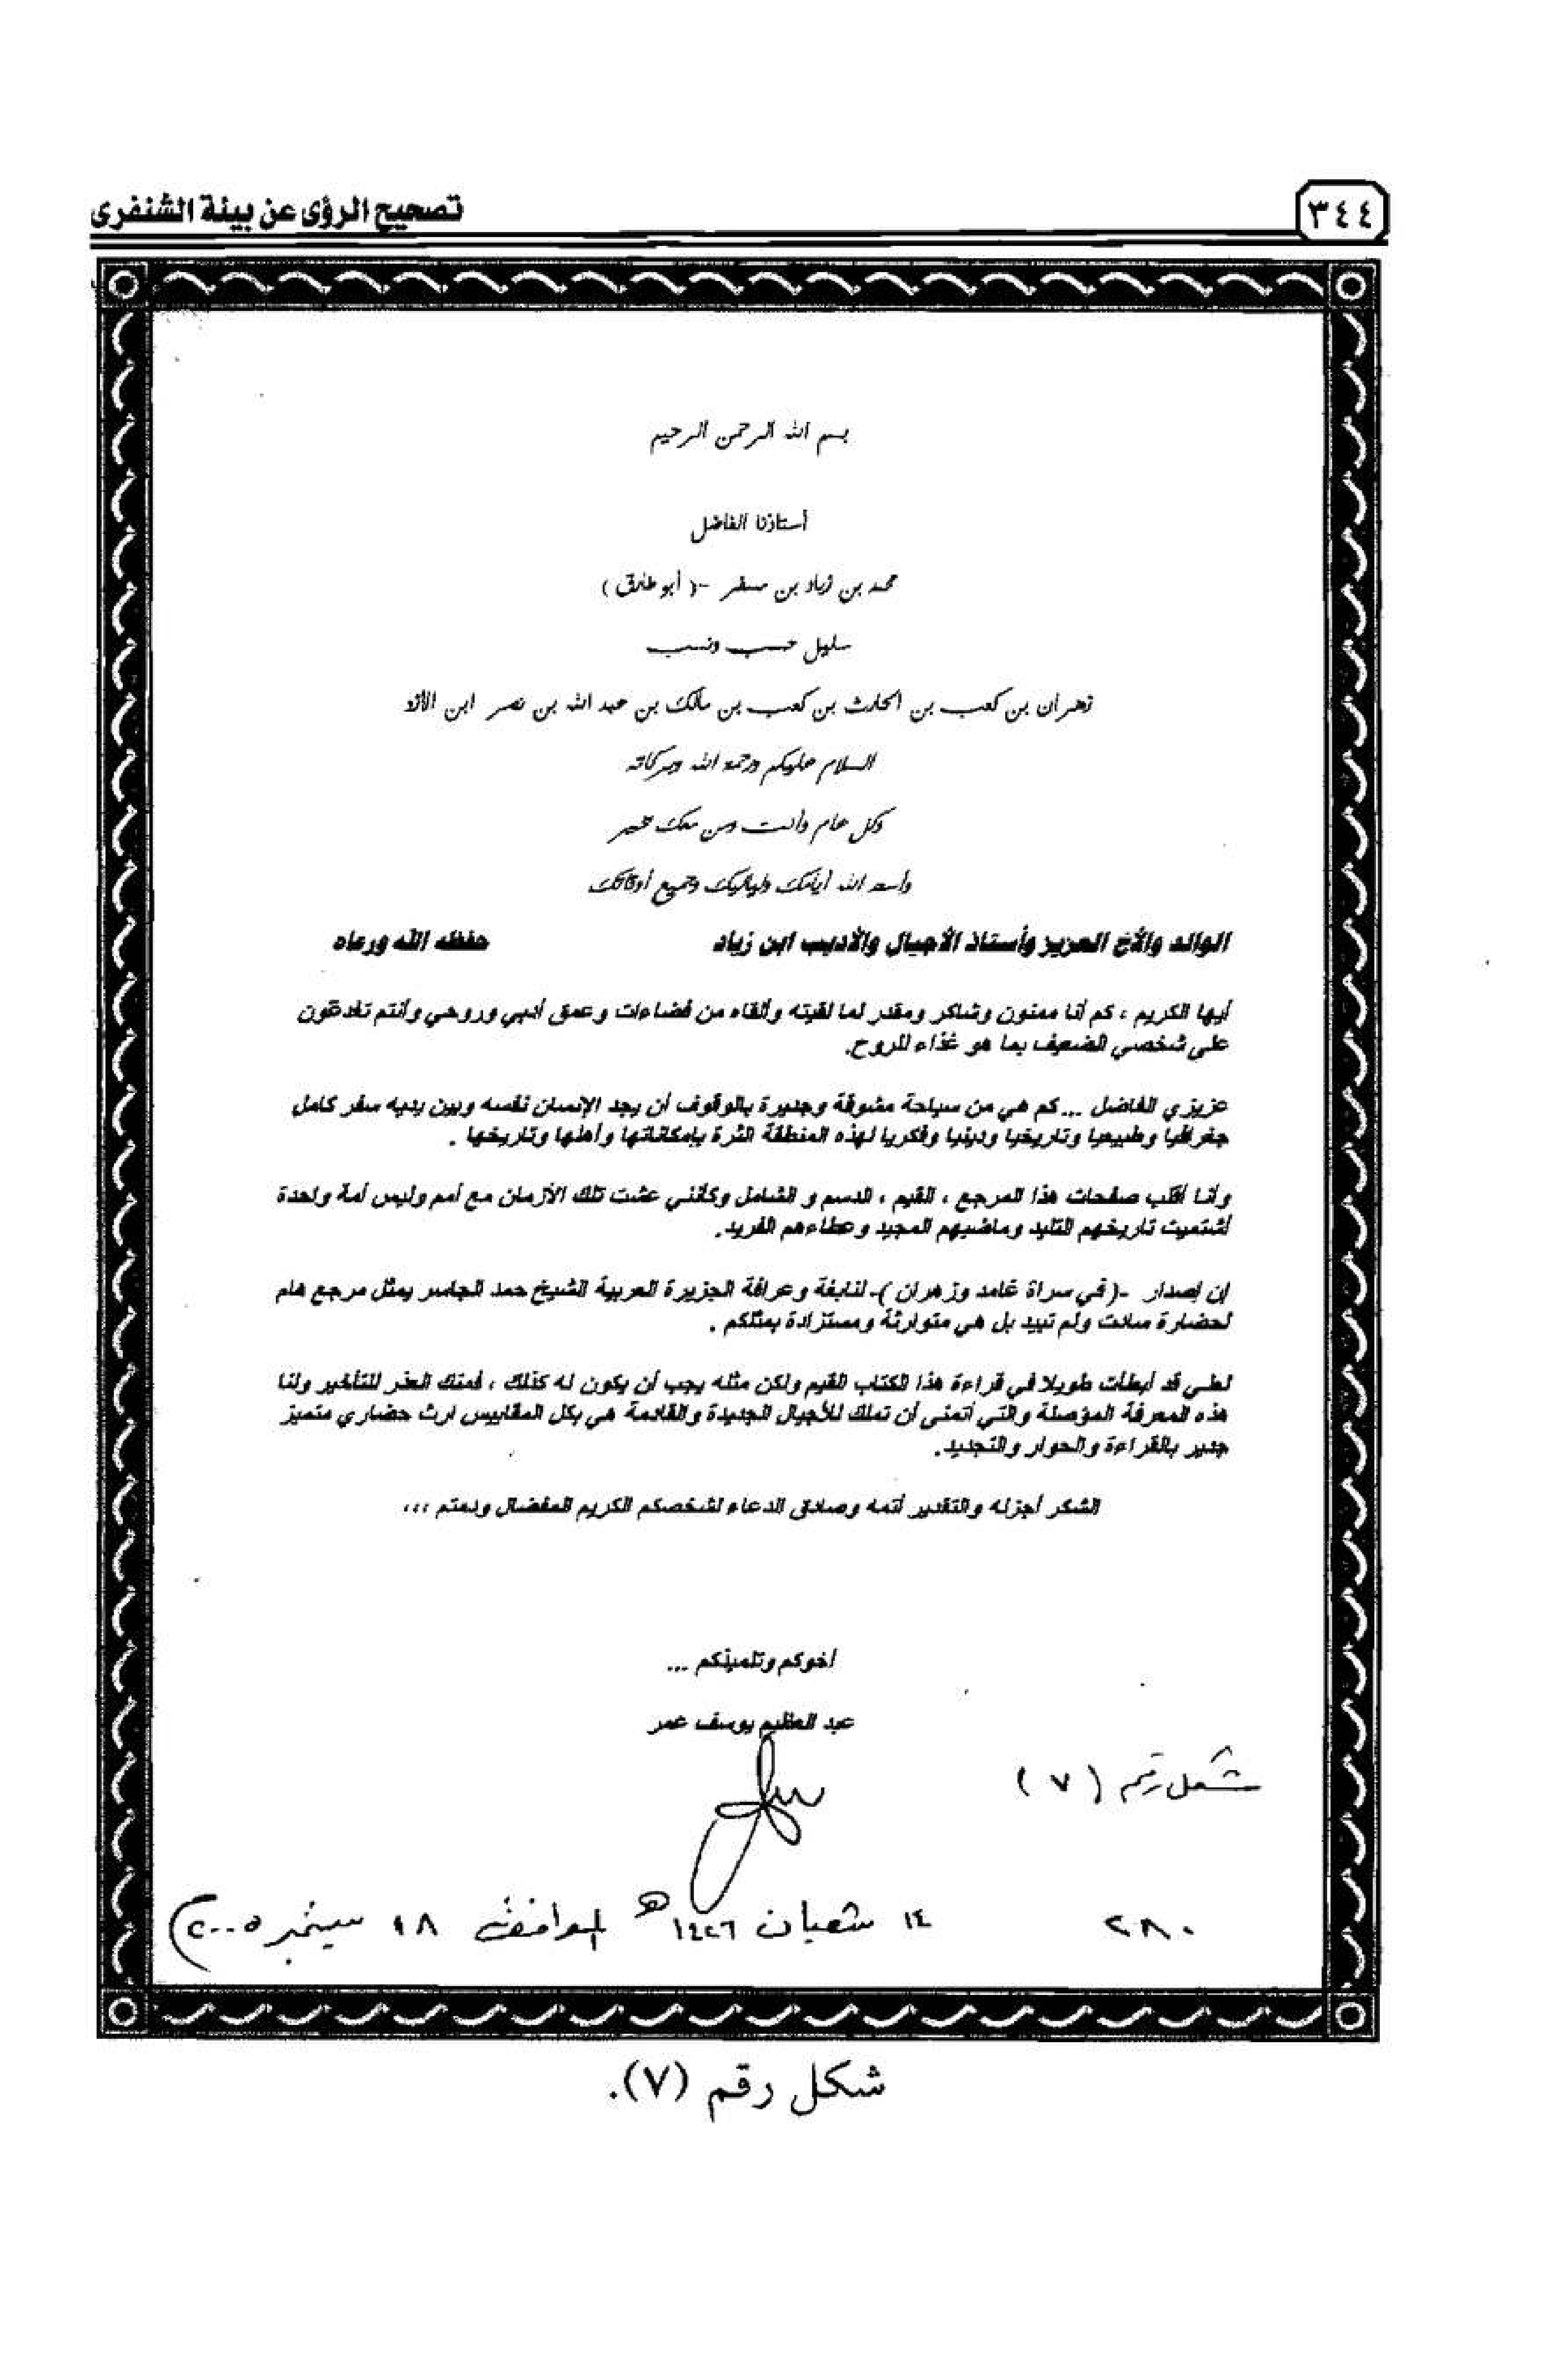 ٣٤٤
تصحيح الرؤى عن بيئة الشنفرى
بسم الله الرحمن الرحيم
أستاذنا الفاضل
محمد بن زياد بن مسفر -( أبو طارق )
سليل حسب ونسب
زهران بن كعب بن الحارث بن كعب بن مالك بن عبد الله بن نصر ابن الأزد
السلام عليكم ورحمة الله وبركاته
وكل عام وأنت ومن معك بخير
وأسعد الله أيامك ولياليك وجميع أوقاتك
الوالد والأخ العزيز وأستاذ الأجيال والأديب ابن زياد حفظه الله ورعاه
أيها الكريم ، كم أنا ممنون وشاكر ومقدر لما لقيته وألقاه من فضاءات وعمق أدبي وروحي وأنتم تغدقون
على شخصي الضعيف بما هو غذاء للروح.
عزيزي الفاضل ... كم هي من سياحة مشوقة وجديرة بالوقوف أن يجد الإنسان نفسه وبين يديه سفر كامل
جغرافيا وطبيعيا وتاريخيا ودينيا وفكريا لهذه المنطقة الثرة بإمكاناتها وأهلها وتاريخها .
وأنا أقلب صفحات هذا المرجع ، القيم ، الدسم و الشامل وكأنني عشت تلك الأزمان مع أمم وليس أمة واحدة
أشتميت تاريخهم التليد وماضيهم المجيد وعطاءهم الفريد.
إن إصدار -( في سراة غامد وزهران )- لنابغة وعرافة الجزيرة العربية الشيخ حمد الجاسر يمثل مرجع هام
لحضارة سادت ولم تبيد بل هي متوارثة ومستزادة بمثلكم .
لعلي قد أبطأت طويلا في قراءة هذا الكتاب القيم ولكن مثله يجب أن يكون له كذلك ، فمنك العذر للتأخير ولنا
هذه المعرفة المؤصلة والتي أتمنى أن تملك للأجيال الجديدة والقادمة هي بكل المقاييس ارث حضاري متميز
جدير بالقراءة والحوار والتجديد.
الشكر أجزله والتقدير أتمه وصادق الدعاء لشخصكم الكريم المفضال ودمتم ،،،
أخوكم وتلميذكم ...
عبد العظيم يوسف عمر
شكل رقم (٧)
٢٨٠
١٤ شعبان ١٤٢٦هـ الموافق ١٨ سبتمبر ٢٠٠٥م
شكل رقم (٧).